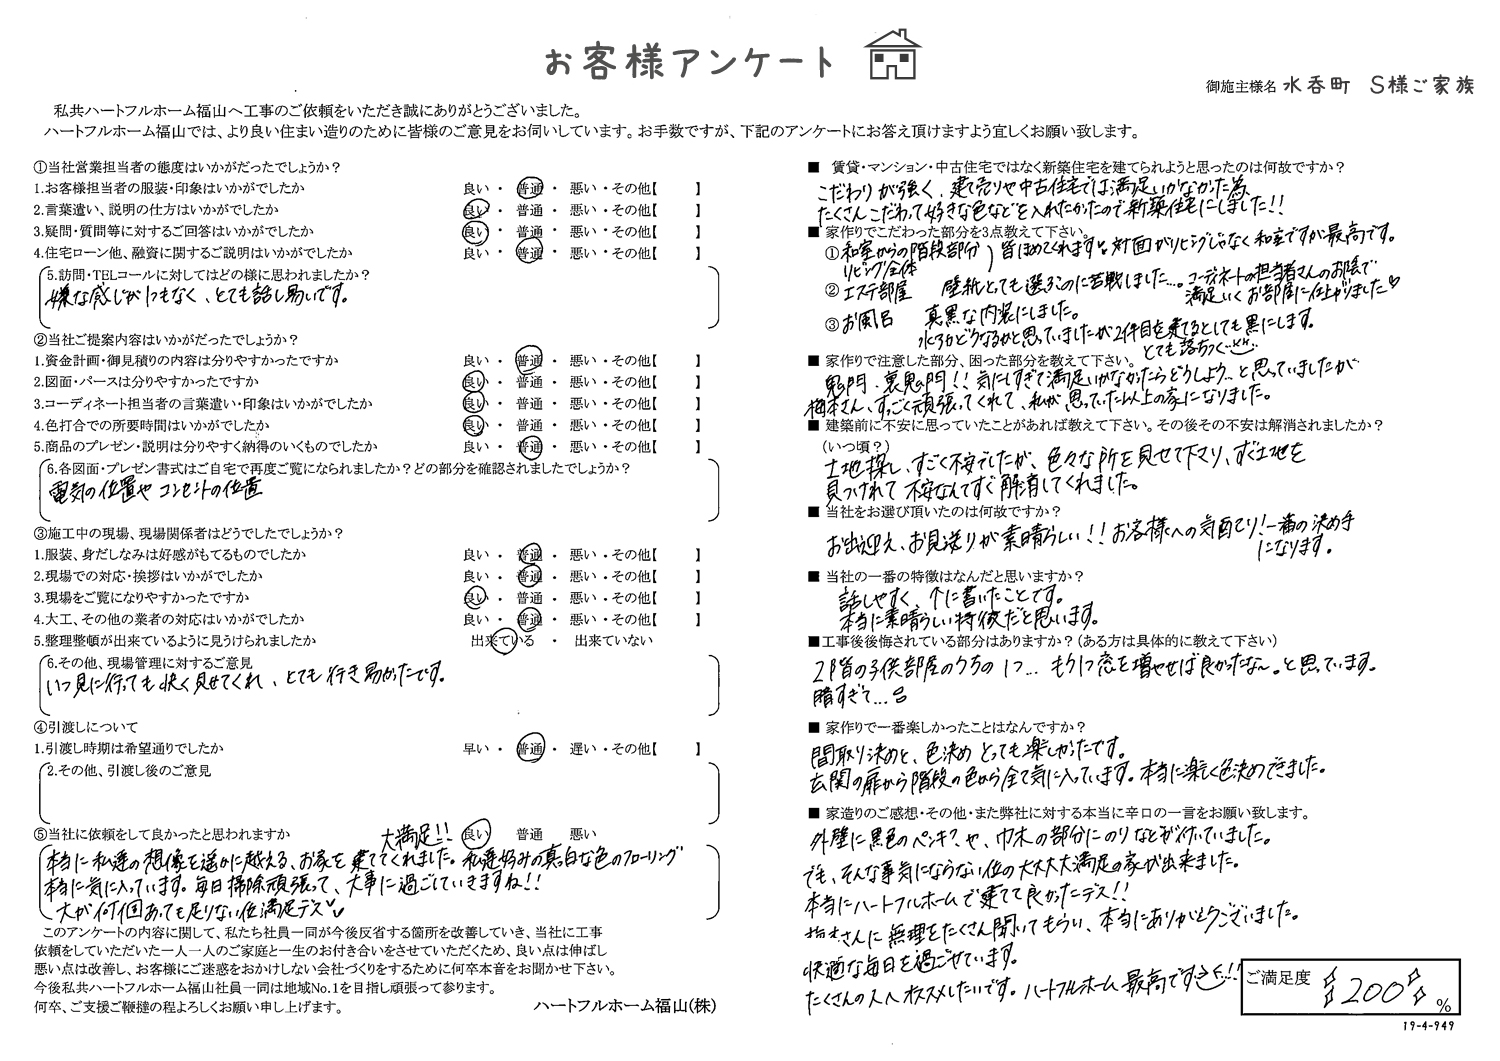 お客様アンケート
御施主様名 水呑町 S様ご家族
私共ハートフルホーム福山へ工事のご依頼をいただき誠にありがとうございました。
ハートフルホーム福山では、より良い住まい造りのために皆様のご意見をお伺いしています。お手数ですが、下記のアンケートにお答え頂けますよう宜しくお願い致します。
①当社営業担当者の態度はいかがだったでしょうか？
1.お客様担当者の服装・印象はいかがでしたか 良い・ 普通 ・ 悪い・その他【 】
2.言葉遣い、説明の仕方はいかがでしたか 良い・ 普通 ・ 悪い・その他【 】
3.疑問・質問等に対するご回答はいかがでしたか 良い・ 普通 ・ 悪い・その他【 】
4.住宅ローン他、融資に関するご説明はいかがでしたか 良い・ 普通 ・ 悪い・その他【 】
5.訪問・TELコールに対してはどの様に思われましたか？
嫌な感じが1つもなく、とても話し易いです。
②当社ご提案内容はいかがだったでしょうか？
1.資金計画・御見積りの内容は分りやすかったですか 良い・ 普通 ・ 悪い・その他【 】
2.図面・パースは分りやすかったですか 良い・ 普通 ・ 悪い・その他【 】
3.コーディネート担当者の言葉遣い・印象はいかがでしたか 良い・ 普通 ・ 悪い・その他【 】
4.色打合での所要時間はいかがでしたか 良い・ 普通 ・ 悪い・その他【 】
5.商品のプレゼン・説明は分りやすく納得のいくものでしたか 良い・ 普通 ・ 悪い・その他【 】
6.各図面・プレゼン書式はご自宅で再度ご覧になられましたか？どの部分を確認されましたでしょうか？
電気の位置や コンセントの位置
③施工中の現場、現場関係者はどうでしたでしょうか？
1.服装、身だしなみは好感がもてるものでしたか 良い・ 普通 ・ 悪い・その他【 】
2.現場での対応・挨拶はいかがでしたか 良い・ 普通 ・ 悪い・その他【 】
3.現場をご覧になりやすかったですか 良い・ 普通 ・ 悪い・その他【 】
4.大工、その他の業者の対応はいかがでしたか 良い・ 普通 ・ 悪い・その他【 】
5.整理整頓が出来ているように見うけられましたか 出来ている ・ 出来ていない
6.その他、現場管理に対するご意見
いつ見に行っても快く見せてくれ、とても行き易かったです。
④引渡しについて
1.引渡し時期は希望通りでしたか 早い・ 普通 ・ 遅い・その他【 】
2.その他、引渡し後のご意見
⑤当社に依頼をして良かったと思われますか 大満足!! 良い 普通 悪い
本当に私達の想像を遥かに越える、お家を建ててくれました。私達好みの真っ白な色のフローリング
本当に気に入っています。毎日掃除頑張って、大事に過ごしていきますね!!
大が何個あっても足りない位満足デス♡
このアンケートの内容に関して、私たち社員一同が今後反省する箇所を改善していき、当社に工事
依頼をしていただいた一人一人のご家庭と一生のお付き合いをさせていただくため、良い点は伸ばし
悪い点は改善し、お客様にご迷惑をおかけしない会社づくりをするために何卒本音をお聞かせ下さい。
今後私共ハートフルホーム福山社員一同は地域No.1を目指し頑張って参ります。
何卒、ご支援ご鞭撻の程よろしくお願い申し上げます。 ハートフルホーム福山(株)
■ 賃貸・マンション・中古住宅ではなく新築住宅を建てられようと思ったのは何故ですか？
こだわりが強く、建て売りや中古住宅では満足いかなかった為
たくさんこだわって好きな色などを入れたかったので新築住宅にしました!!
■ 家作りでこだわった部分を3点教えて下さい。
①和室からの階段部分 リビング全体 皆ほめてくれます。対面がリビングじゃなく和室ですが最高です。
②エステ部屋 壁紙とっても選ぶのに苦戦しました…。コーディネートの担当者さんのお陰で
満足いくお部屋に仕上がりました♡
③お風呂 真黒な内装にしました。
水アカどうなるかと思っていましたが2件目を建てるとしても黒にします。
とても落ちつく…
■ 家作りで注意した部分、困った部分を教えて下さい。
鬼門、裏鬼門!! 気にしすぎて満足いかなかったらどうしよう…と思っていましたが
梅本さん、すっごく頑張ってくれて、私が思っていた以上の家になりました。
■ 建築前に不安に思っていたことがあれば教えて下さい。その後その不安は解消されましたか？
(いつ頃？)
土地探し、すごく不安でしたが、色々な所を見せて下さり、すぐ土地を
見つけれて 不安なんてすぐ解消してくれました。
■ 当社をお選び頂いたのは何故ですか？
お出迎え、お見送りが素晴らしい!! お客様への気配り! 一番の決め手
になります。
■ 当社の一番の特徴はなんだと思いますか？
話しやすく、↑に書いたことです。
本当に素晴らしい特徴だと思います。
■工事後後悔されている部分はありますか？(ある方は具体的に教えて下さい)
2階の子供部屋のうちの1つ… もう1つ窓を増やせば良かったな〜。と思っています。
暗すぎて…
■ 家作りで一番楽しかったことはなんですか？
間取り決めと、色決め とっても楽しかったです。
玄関の扉から階段の色から全て気に入っています。本当に楽しく色決めできました。
■ 家造りのご感想・その他・また弊社に対する本当に辛口の一言をお願い致します。
外壁に黒色のペンキ？や、巾木の部分にのりなどが付いていました。
でも、そんな事気にならない位の大大大大満足の家が出来ました。
本当にハートフルホームで建てて良かったデス!!
さんに無理をたくさん聞いてもらい、本当にありがとうございました。
快適な毎日を過ごせています。
たくさんの人へオススメしたいです。ハートフルホーム最高です!!
ご満足度 200 %
19-4-949